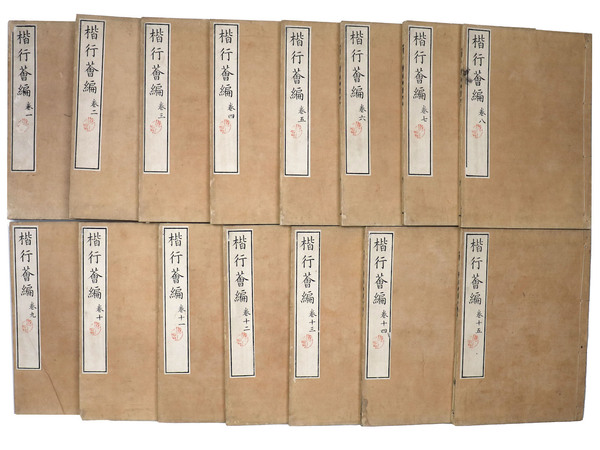 楷行薈編 卷一
楷行薈編 卷二
楷行薈編 卷三
楷行薈編 卷四
楷行薈編 卷五
楷行薈編 卷六
楷行薈編 卷七
楷行薈編 卷八
楷行薈編 卷九
楷行薈編 卷十
楷行薈編 卷十一
楷行薈編 卷十二
楷行薈編 卷十三
楷行薈編 卷十四
楷行薈編 卷十五